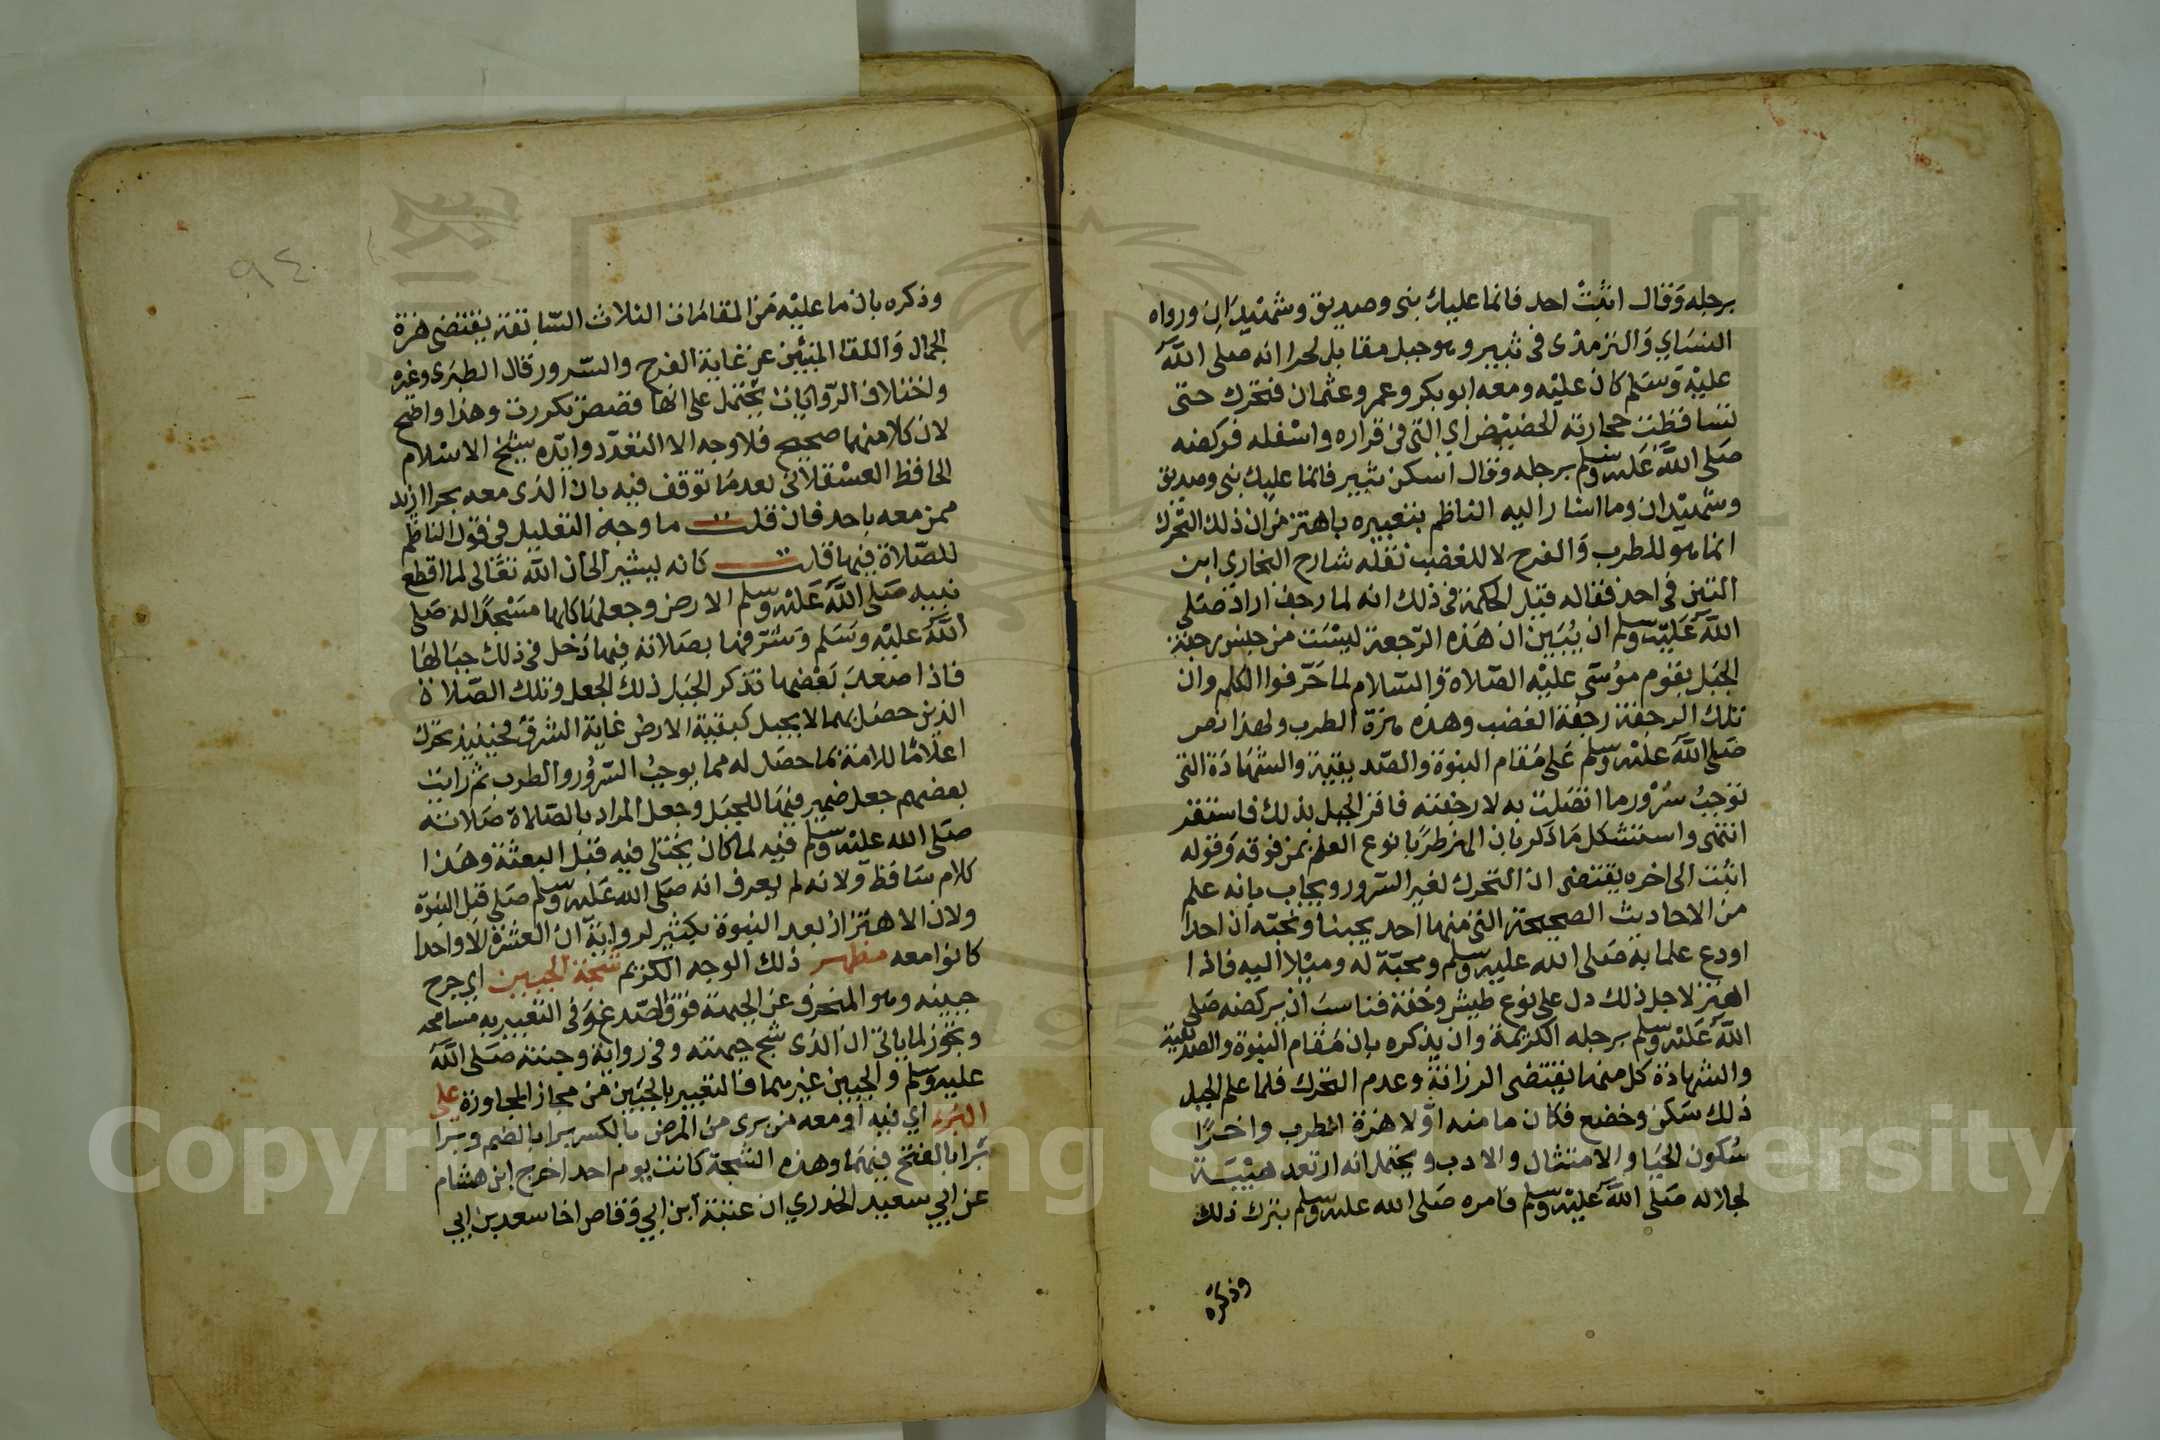 برجله وقال اثبت احد فانما عليك نبى وصديق وشهيدان ورواه
النساي والترمذى فى ثبير وهو جبل مقابل لحرا انه صلى الله
عليه وسلم كان عليه ومعه ابو بكر وعمر وعثمان فتحرك حتى
تساقطت حجارته بالحضيض اي التى فى قراره واسفله فركضه
صلى الله عليه وسلم برجله وقال اسكن ثبير فانما عليك نبى وصديق
وشهيدان وما اشار اليه الناظم بتعبيره باهتز من ان ذلك التحرك
انما هو للطرب والفرح لا للغضب نقله شارح البخاري ابن
التين فى احد فقاله قيل الحكمة فى ذلك انه لما رجف اراد صلى
الله عليه وسلم ان يبين ان هذه الرجعة ليست من جنس رجفة
الجبل بقوم موسى عليه الصلاة والسلام لما حرفوا الكلم وان
تلك الرجفة رجفة الغضب وهذه هزة الطرب ولهذا نص
صلى الله عليه وسلم على مقام النبوة والصديقية والشهادة التى
توجب سرور ما اتصلت به لا رجفته فاقر الجبل بذلك فاستقر
انتهى واستشكل ما ذكر بان الهز طربا نوع العلم بمن فوقه وقوله
اثبت الى اخره يقتضى ان التحرك لغير السرور ويجاب بانه علم
من الاحاديث الصحيحة التى منها احد يحبنا ونحبه ان احدا
اودع علما به صلى الله عليه وسلم ومحبة له وميلا اليه فاذا
اهتز لاجل ذلك دل على نوع طيش وخفة فناسب ان يركضه صلى
الله عليه وسلم برجله الكريمة وان يذكره بان مقام النبوة والصديقية
والشهادة كل منها يقتضى الرزانة وعدم التحرك فلما علم الجبل
ذلك سكن وخضع فكان ما منه اولا هزة الطرب واخرا
سكون الحيا والامتثال والادب ويحتمل انه ارتعد هيبة
لجلاله صلى الله عليه وسلم فامره صلى الله عليه وسلم بترك ذلك
وذكره
٩٤
وذكره بان ما عليه من المقامات الثلاث السابقة يقتضى هزة
الجمال واللقا المنبئين عن غاية الفرح والسرور قال الطبرى وغيره
واختلاف الروايات يحتمل على انها قصص تكررت وهذا واضح
لان كلا منهما صحيح فلا وجه الا التعدد وايده شيخ الاسلام
الحافظ العسقلانى بعد ما توقف فيه بان الذى معه بحرا ازيد
ممن معه باحد فان قلت ما وجه التعليل فى قول الناظم
للصلاة فيها قلت كانه يشير الى ان الله تعالى لما اقطع
نبيه صلى الله عليه وسلم الارض وجعلها كلها مسجدا له صلى
الله عليه وسلم وشرفها بصلاته فيها دخل فى ذلك جبالها
فاذا صعد بعضها تذكر الجبل ذلك الجعل وتلك الصلاة
الذين حصل بهما لا بجبل كبقية الارض غاية الشرف فحينيذ تحرك
اعلاما للامة بما حصل له مما يوجب السرور والطرب ثم رايت
بعضهم جعل ضمير فيها للجبل وجعل المراد بالصلاة صلاته
صلى الله عليه وسلم فيه لما كان يختلى فيه قبل البعثة وهذا
كلام ساقط ولانه لم يعرف انه صلى الله عليه وسلم صلى قبل النبوة
ولان الاهتزاز بعد النبوة بكثير لرواية ان العشرة الا واحدا
كانوا معه مظهر ذلك الوجه الكريم شجة الجبين اي جرح
جبينه وهو المنحرف عن الجبهة فوق الصدغ وفى التعبير به مسامحه
وتجوز لما ياتى ان الذى شج جبهته وفى رواية وجنته صلى الله
عليه وسلم والجبين غيرهما فالتعبير بالجبين من مجاز المجاورة على
البرء اي فيه او معه من برى من المرض بالكسر برا بالضم وبرا
برا بالفتح فيهما وهذه الشجة كانت يوم احد اخرج ابن هشام
عن ابي سعيد الخدري ان عتبة ابن ابي وقاص اخا سعد بن ابي
Copyright © King Saud University